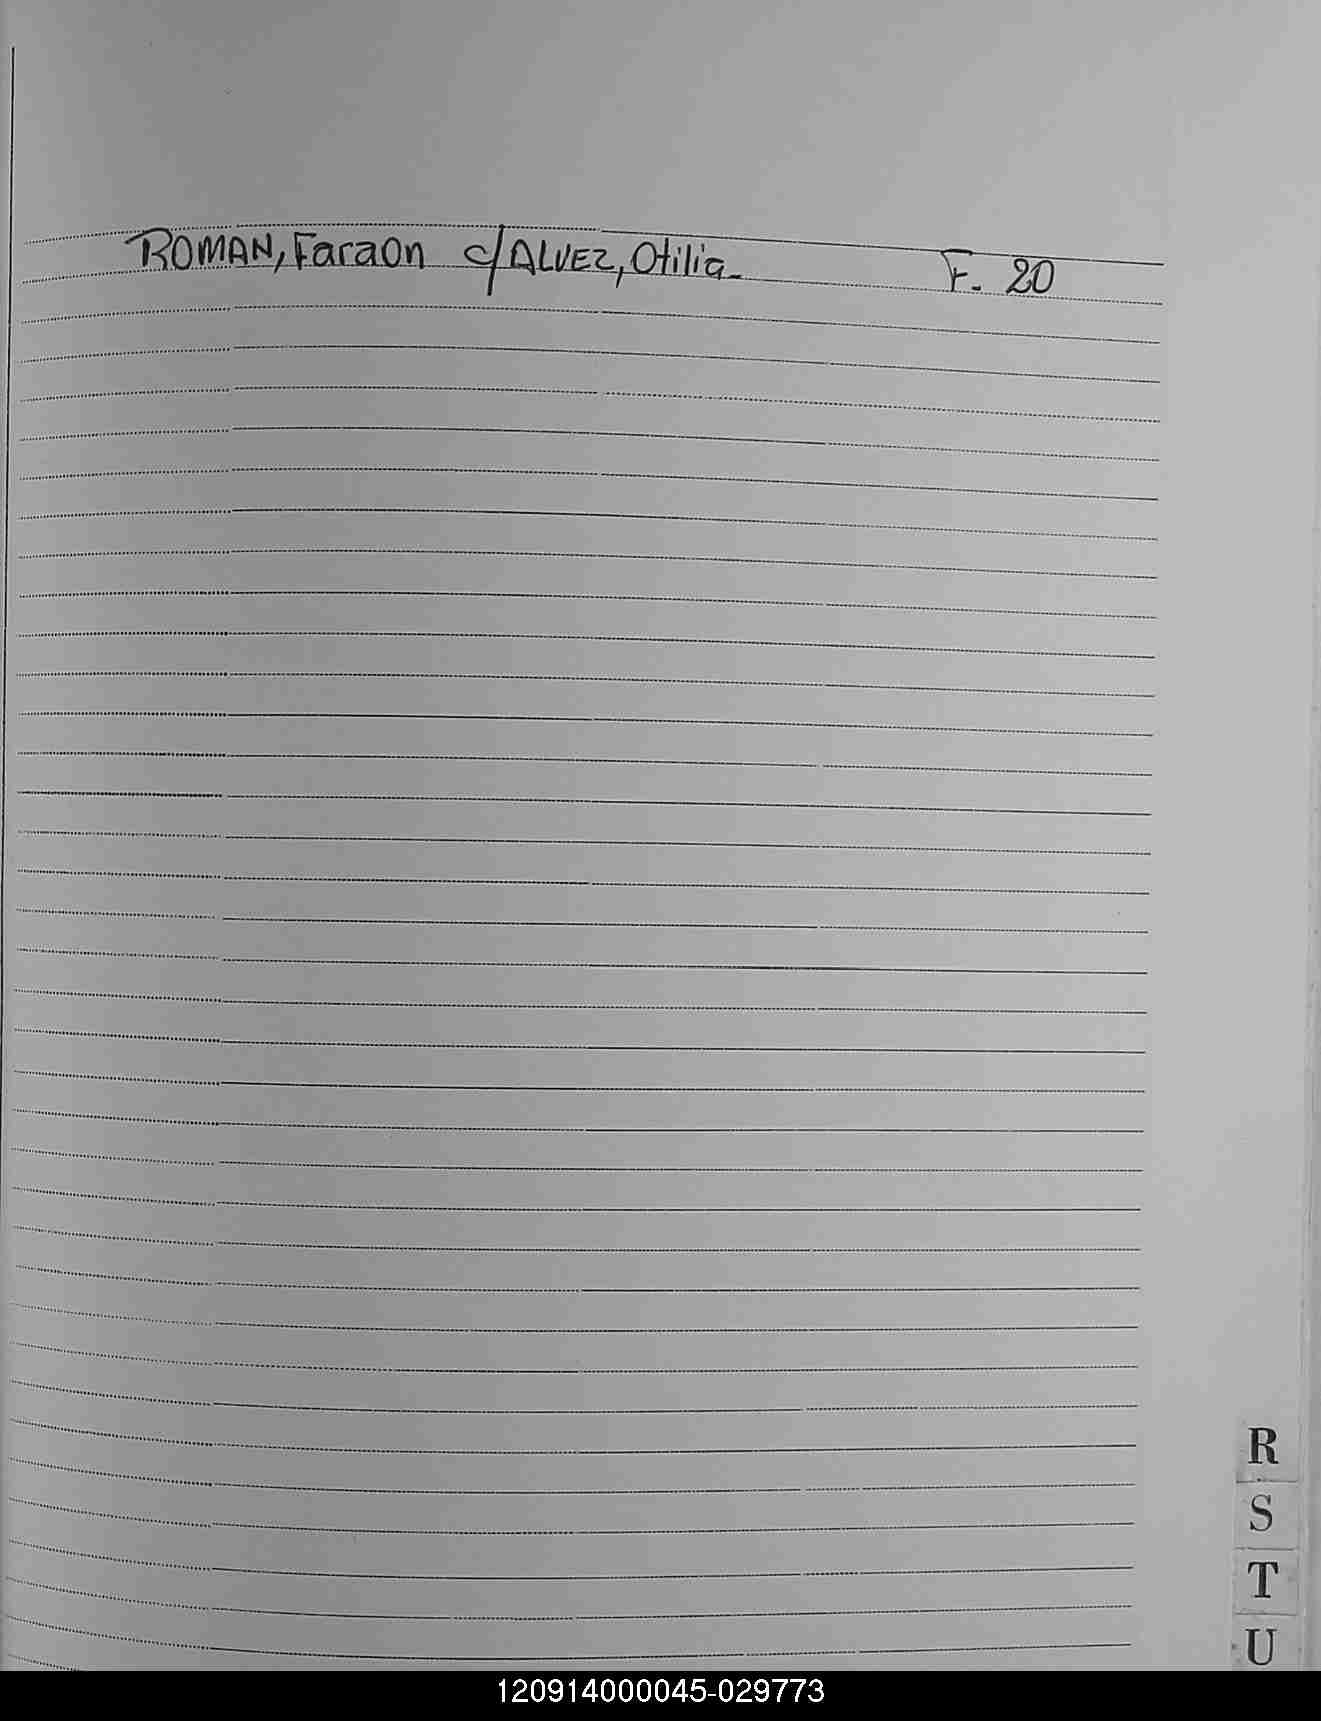 ROMAN, Faraon c/ ALVEZ, Otilia. F. 20
R
S
T
U
120914000045-029773